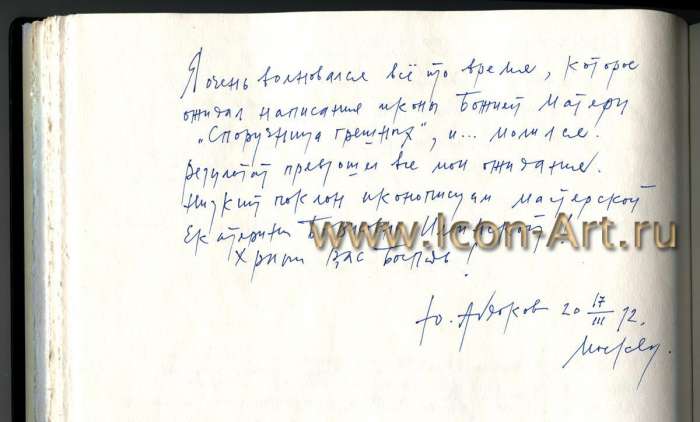 Я очень волновался всё то время, которое
ожидал написания иконы Божией Матери
„Споручница грешных", и... молился.
Результат превзошел все мои ожидания.
Низкий поклон иконописцам мастерской
Екатерины
www.Icon-Art.ru
Храни Вас Господь!
Ю. Абдоков 20 17/III 12.
Москва.